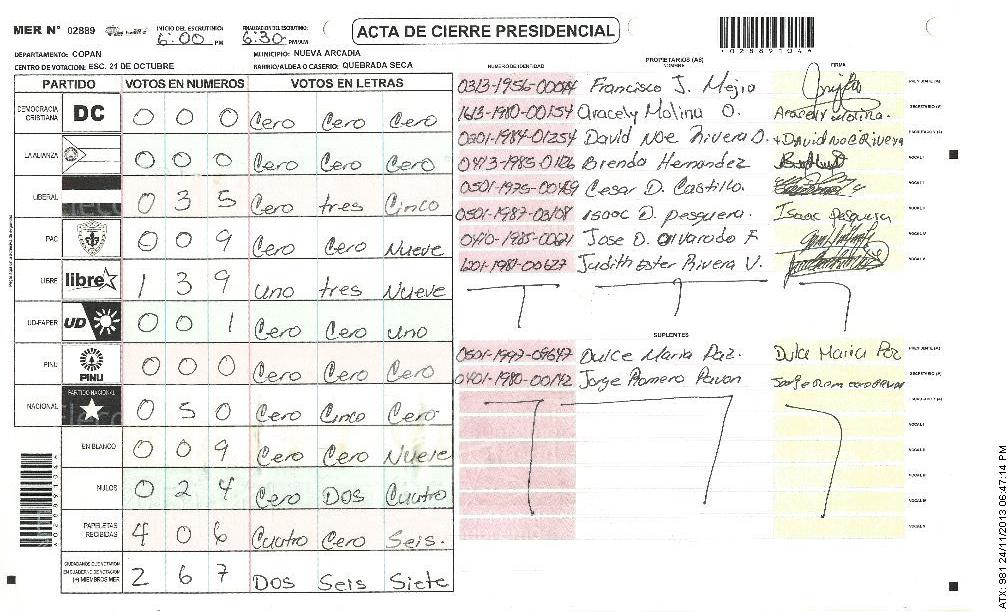 MER Nº 02889
INICIO DEL ESCRUTINIO: 6:00 PM
FINALIZACION DEL ESCRUTINIO: 6:30 PM/AM
ACTA DE CIERRE PRESIDENCIAL
DEPARTAMENTO: COPAN
MUNICIPIO: NUEVA ARCADIA
CENTRO DE VOTACION: ESC. 21 DE OCTUBRE
BARRIO/ALDEA O CASERIO: QUEBRADA SECA
PARTIDO VOTOS EN NUMEROS VOTOS EN LETRAS
DEMOCRACIA CRISTIANA DC 0 0 0 Cero Cero Cero
LA ALIANZA 0 0 0 Cero Cero Cero
LIBERAL 0 3 5 Cero tres Cinco
PAC 0 0 9 Cero Cero Nueve
LIBRE libre 1 3 9 Uno tres Nueve
UD-FAPER UD 0 0 1 Cero Cero uno
PINU PINU 0 0 0 Cero Cero Cero
NACIONAL PARTIDO NACIONAL 0 5 0 Cero Cinco Cero
EN BLANCO 0 0 9 Cero Cero Nueve
NULOS 0 2 4 Cero DOS Cuatro
PAPELETAS RECIBIDAS 4 0 6 Cuatro Cero Seis.
CIUDADANOS QUE VOTARON EN CUADERNO DE VOTACION (+) MIEMBROS MER 2 6 7 DOS Seis Siete
PROPIETARIOS (AS)
NUMERO DE IDENTIDAD NOMBRE FIRMA
0313-1956-00044 Francisco J. Mejia
1613-1980-00154 Aracely Molina O. Aracely Molina.
0501-1984-01254 David Noe Rivera O. David Noe Rivera
0413-1985-0126 Brenda Hernandez
0501-1975-00489 Cesar D. Castillo.
0501-1987-03108 Isaac D. pesquera. Isaac pesquera
0410-1985-00621 Jose D. alvarado F
1201-1981-00627 Judith Ester Rivera V.
SUPLENTES
0501-1997-09647 Dulce Maria Paz. Dulce Maria Paz
0401-1980-00142 Jorge Romero Pavon
ATX: 981 24/11/2013 06:47:14 PM